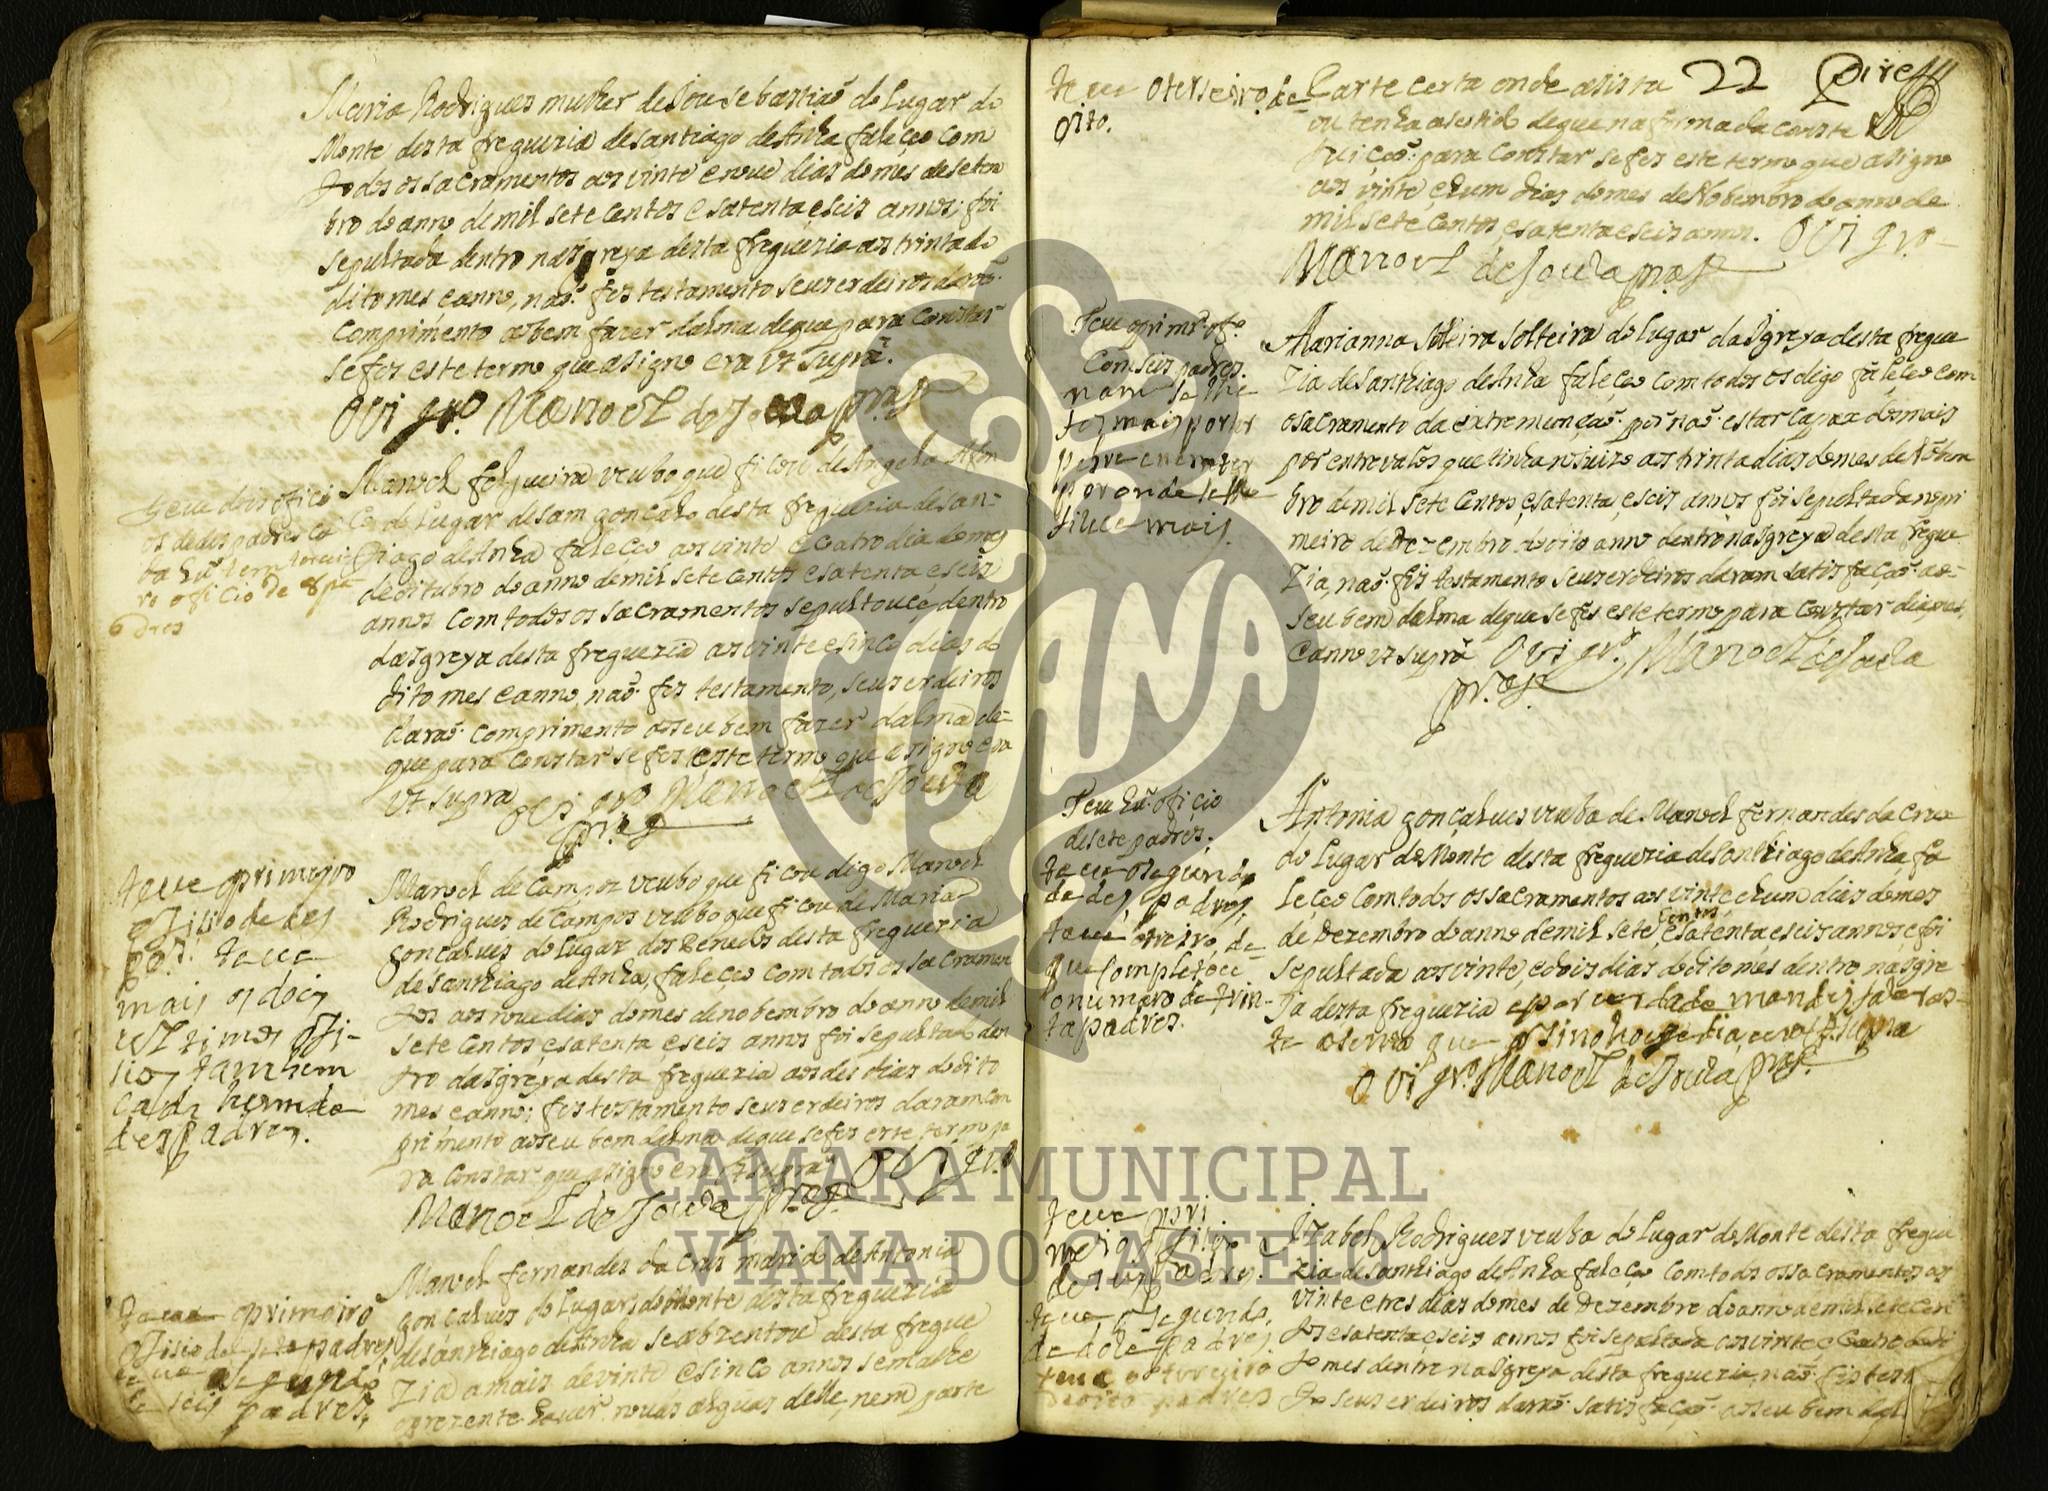 Maria Rodrigues mulher de Jou sebastiaõ do lugar do
Monte desta freguezia de santiago de Anha faleçeo com
todos os sacramentos aos vinte e nove dias do mes de setem
bro do anno de mil sete centos e satenta e seis annos; foi
sepultada dentro na Igreya desta freguezia aos trinta do
dito mes e anno, naõ fes testamento seus erdeiros daraõ
comprimento ao bem fazer dalma de que para constar
se fes este termo que asigno era vt supra.
O Vigro. Manoel de Souza
teue dois ofici
os de des padres ca
da hũ tem terçei
ro oficio de 8 pa
dres
Manoel felgueira veubo que ficou de Angela Afon
ça do lugar de sam gonçalo desta freguezia de san-
tiago de Anha faleçeo aos vinte e coatro dia do mes
de oitubro do anno de mil sete centos e satenta e seis
annos com todos os sacramentos sepultouçe dentro
da Igreya desta freguezia aos vinte e sinco dias do
dito mes e anno, naõ fes testamento, seus erdeiros
daraõ comprimento ao seu bem fazer dalma de-
que para constar se fes este termo que asigno era
vt supra O Vi gro Manoel de Souza
teue o primeyro
ofisio de des
teue
mais os dois
vltimos ofi-
sios tambem
cada hum de
des padres.
Manoel de Campos veubo que ficou digo Manoel
Rodrigues de Campos veubo que ficou de Maria
gonçalves do lugar dos Penedos desta freguezia
de santhiago de Anha, faleçeo com todos os sacramen
tos aos nove dias do mes de nobembro do anno de mil
sete centos e satenta e seis annos foi sepultado den
tro da Igreya desta freguezia aos des dias do dito
mes e anno; fes testamento seus erdeiros daram con
primento ao seu bem dalma de que se fes este termo pa
ra constar que asigno era vt supra O Vigro
Manoel de Souza
teue o primeiro
ofisio de sete padres
teue o segundo
de seis padres,
Manoel fernandes da Crus marido de Antonia
gonçalves do lugar do Monte desta freguezia
de santhiago de Anha se abzentou desta fregue
zia a mais de vinte e sinco annos sem athe
o prezente haver novas algũas delle, nem parte
teue o terseiro de
oito.
Parte certa onde asista 22 Pires
ou tenha asestido de que na forma da const
tuiçoẽs para constar se fes este termo que asigno
aos vinte e hum dias do mes de Nobembro do anno de
mil sete centos, e satenta e seis annos. O Vi gro
Manoel de Souza
Teue o primro. ofo.
Com seis padres.
nam se lhe
fes mais por ser
pobre e nam ter
por onde se lhe
fizece mais.
Marianna Vieira solteira do lugar da Igreya desta fregue
zia de santhiago de Anha faleçeo com todos os digo faleçeo com
o sacramento da extremunçaõ por naõ estar capax de mais
por entrevalos que tinha no juizo aos trinta dias do mes de Nobem
bro de mil sete centos e satenta e seis annos foi sepultada no pri
meiro de Dezembro do dito anno dentro na Igreya desta fregue
zia, naõ fes testamento seus erdeiros daram satisfaçaõ ao-
seu bem dalma de que se fes este termo para constar dia, mes,
e anno vt supra O Vi gro. Manoel de Souza
Teue hũ oficio
de sete padres.
teue o segundo
de des padres
teue o treiro, de
que completoce
o numaro de trin-
ta padres.
Antonia gonçalves veuba de Manoel fernandes da Crus
do lugar do Monte desta freguezia de santhiago de Anha fa
leçeo com todos os sacramentos aos vinte e hum dias do mes
de Dezembro do anno de mil sete centos e satenta e seis annos e foi
sepultada aos vinte, e dois dias do dito mes dentro na Igre
ja desta freguezia e por verdade mandei faser es-
te asento que asino hoge dia, era vt supra
O Vi gro. Manoel de Souza
teue o pri
meiro ofisio
de seis padres.
teue o segundo,
de dose padres
teue o tersejro
de oito padres
Izabel Rodrigues veuba do lugar do Monte desta fregue
zia de Santhiago de Anha faleçeo com todos os sacramentos aos
vinte e tres dias do mes de Dezembro do anno de mil sete cen
tos e satenta e seis annos foi sepultada aos vinte e coatro do di
to mes dentro na Igreya desta freguezia, naõ fes testa
to seus erdeiros daraõ satisfaçaõ ao seu bem dal
VIANA
CÂMARA MUNICIPAL
VIANA DO CASTELO